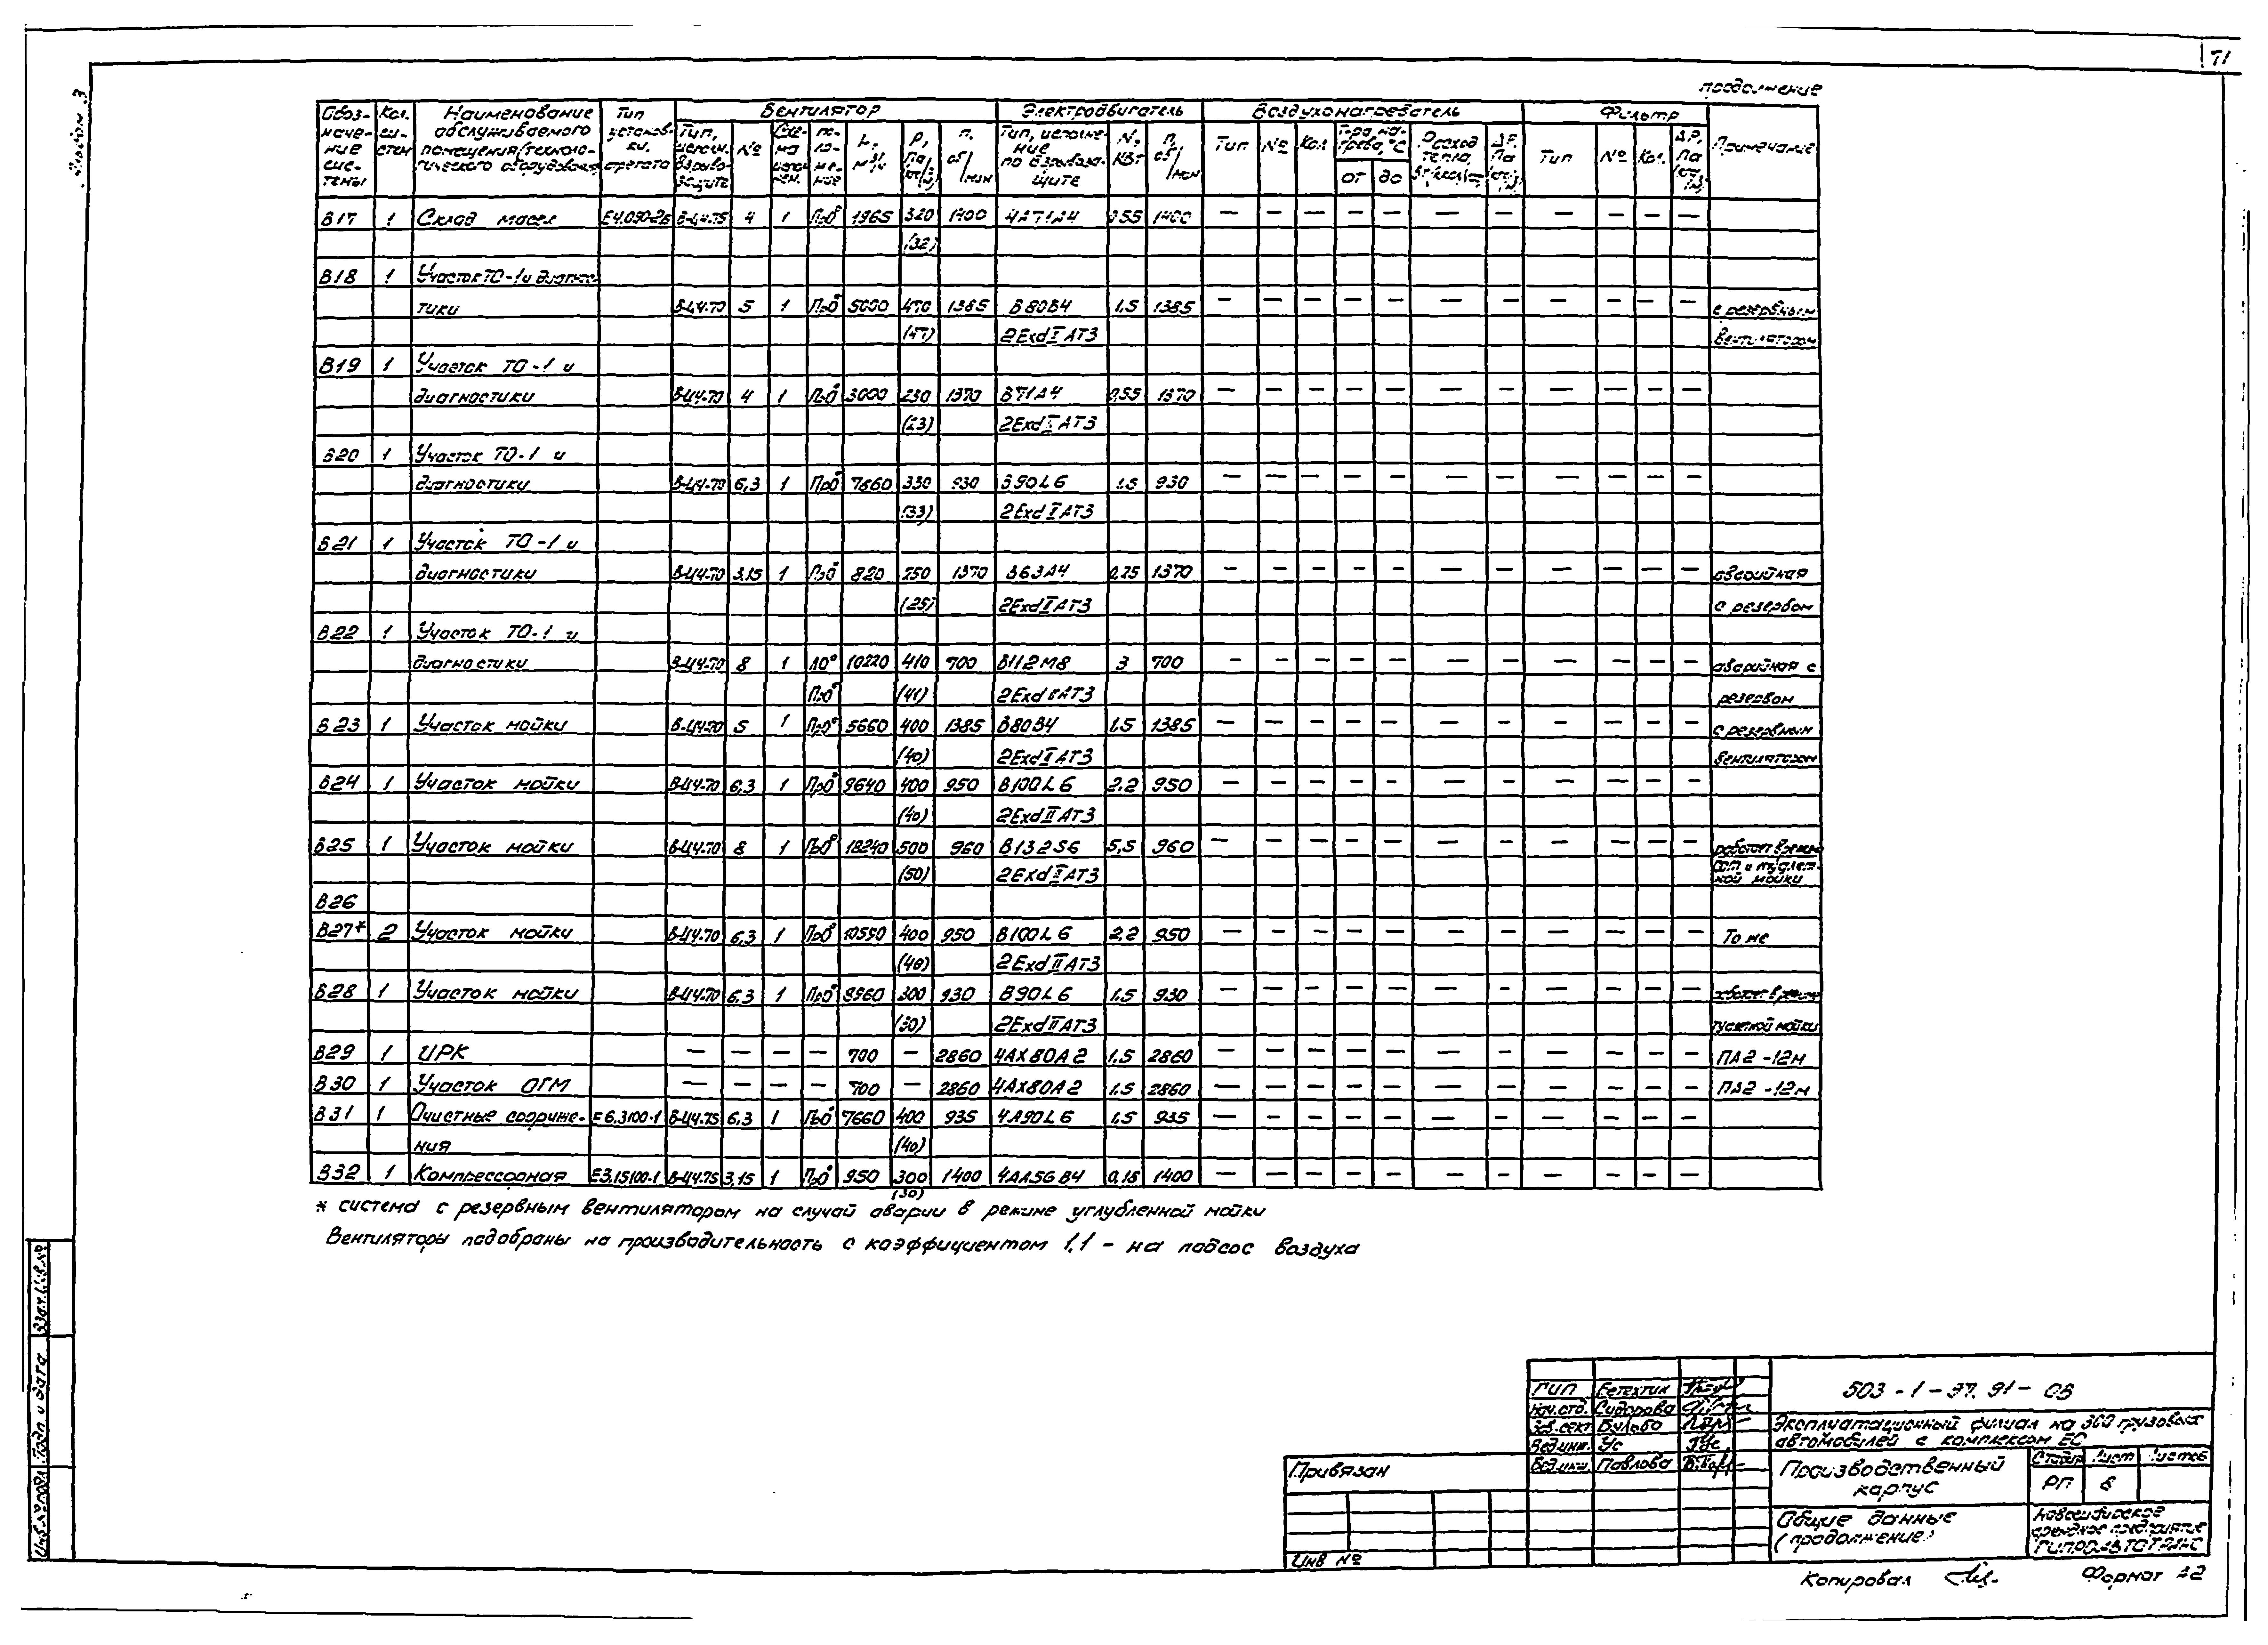 71
Альбом 3
продолжение
Обоз-наче-ние сис-темы | Кол. сис-тем | Наименование обслуживаемого помещения (техноло-гического оборудования) | Тип установ-ки, агрегата | Вентилятор | Электродвигатель | Воздухонагреватель | Фильтр | Примечание
Тип, исполн. по взрыво-защите | № | Схе-ма испол-нен. | по-ло-же-ние | L, м³/ч | P, Па (кгс/м²) | n, об/мин | Тип, исполне-ние по взрывоза-щите | N, кВт | n, об/мин | Тип | № | Кол | Т-ра на-грева, °С от до | Расход тепла, Вт (ккал/ч) | ΔР, Па (кгс/м²) | Тип | № | Кол. | ΔР, Па (кгс/м²)
В17 1 Склад масел Е4.090-2Б В-Ц4-75 4 1 Пр0° 1965 320 1400 4А71А4 0,55 1400 — — — — — — — — — — —
(32)
В18 1 Участок ТО-1 и диагнос-
тики В-Ц4-70 5 1 Пр0° 5000 470 1385 В80В4 1,5 1385 — — — — — — — — — — — с резервным
(47) 2ExdIIAT3 вентилятором
В19 1 Участок ТО-1 и
диагностики В-Ц4-70 4 1 Пр0° 3000 230 1370 В71А4 0,55 1370 — — — — — — — — — — —
(23) 2ExdIIAT3
В20 1 Участок ТО-1 и
диагностики В-Ц4-70 6,3 1 Пр0° 7860 330 930 В90L6 1,5 930 — — — — — — — — — — —
(33) 2ExdIIAT3
В21 1 Участок ТО-1 и
диагностики В-Ц4-70 3,15 1 Пр0° 820 250 1370 В63А4 0,25 1370 — — — — — — — — — — — аварийная
(25) 2ExdIIAT3 с резервом
В22 1 Участок ТО-1 и
диагностики В-Ц4-70 8 1 Л0° 10220 410 700 В112М8 3 700 — — — — — — — — — — — аварийная с
Пр0° (41) 2ExdIIAT3 резервом
В23 1 Участок мойки В-Ц4-70 5 1 Пр0° 5660 400 1385 В80В4 1,5 1385 — — — — — — — — — — — с резервным
(40) 2ExdIIAT3 вентилятором
В24 1 Участок мойки В-Ц4-70 6,3 1 Пр0° 9640 400 950 В100L6 2,2 950 — — — — — — — — — — —
(40) 2ExdIIAT3
В25 1 Участок мойки В-Ц4-70 8 1 Пр0° 18240 500 960 В132S6 5,5 960 — — — — — — — — — — — работает в режиме
(50) 2ExdIIAT3 кой мойки
В26
В27* 2 Участок мойки В-Ц4-70 6,3 1 Пр0° 10590 400 950 В100L6 2,2 950 — — — — — — — — — — — То же
(40) 2ExdIIAT3
В28 1 Участок мойки В-Ц4-70 6,3 1 Пр0° 8960 300 930 В90L6 1,5 930 — — — — — — — — — — — работает в режиме
(30) 2ExdIIAT3 мойки
В29 1 ИРК — — — — 700 — 2860 4АХ80А2 1,5 2860 — — — — — — — — — — — ПА2-12м
В30 1 Участок ОГМ — — — — 700 — 2860 4АХ80А2 1,5 2860 — — — — — — — — — — — ПА2-12м
В31 1 Очистные сооруже- Е6,3100-1 В-Ц4-75 6,3 1 Пр0° 7660 400 935 4А90L6 1,5 935 — — — — — — — — — — —
ния (40)
В32 1 Компрессорная Е3,15100-1 В-Ц4-75 3,15 1 Пр0° 950 300 1400 4АА56В4 0,18 1400 — — — — — — — — — — —
(30)
* система с резервным вентилятором на случай аварии в режиме углубленной мойки
Вентиляторы подобраны на производительность с коэффициентом 1,1 – на подсос воздуха
Взам. инв. №
Подп. и дата
Инв. № подл.
503-1-97.91-ОВ
ГИП Бетехтин
Нач. отд. Сидорова
Зав. сект Булава
Вед. инж. Ус
Вед. инж Павлова
Эксплуатационный филиал на 300 грузовых
автомобилей с комплексом ЕС
Производственный
корпус
Стадия Лист Листов
РП 8
Общие данные
(продолжение)
Новосибирское
арендное предприятие
ГИПРОАВТОТРАНС
Привязан
Инв №
Копировал
Формат А2